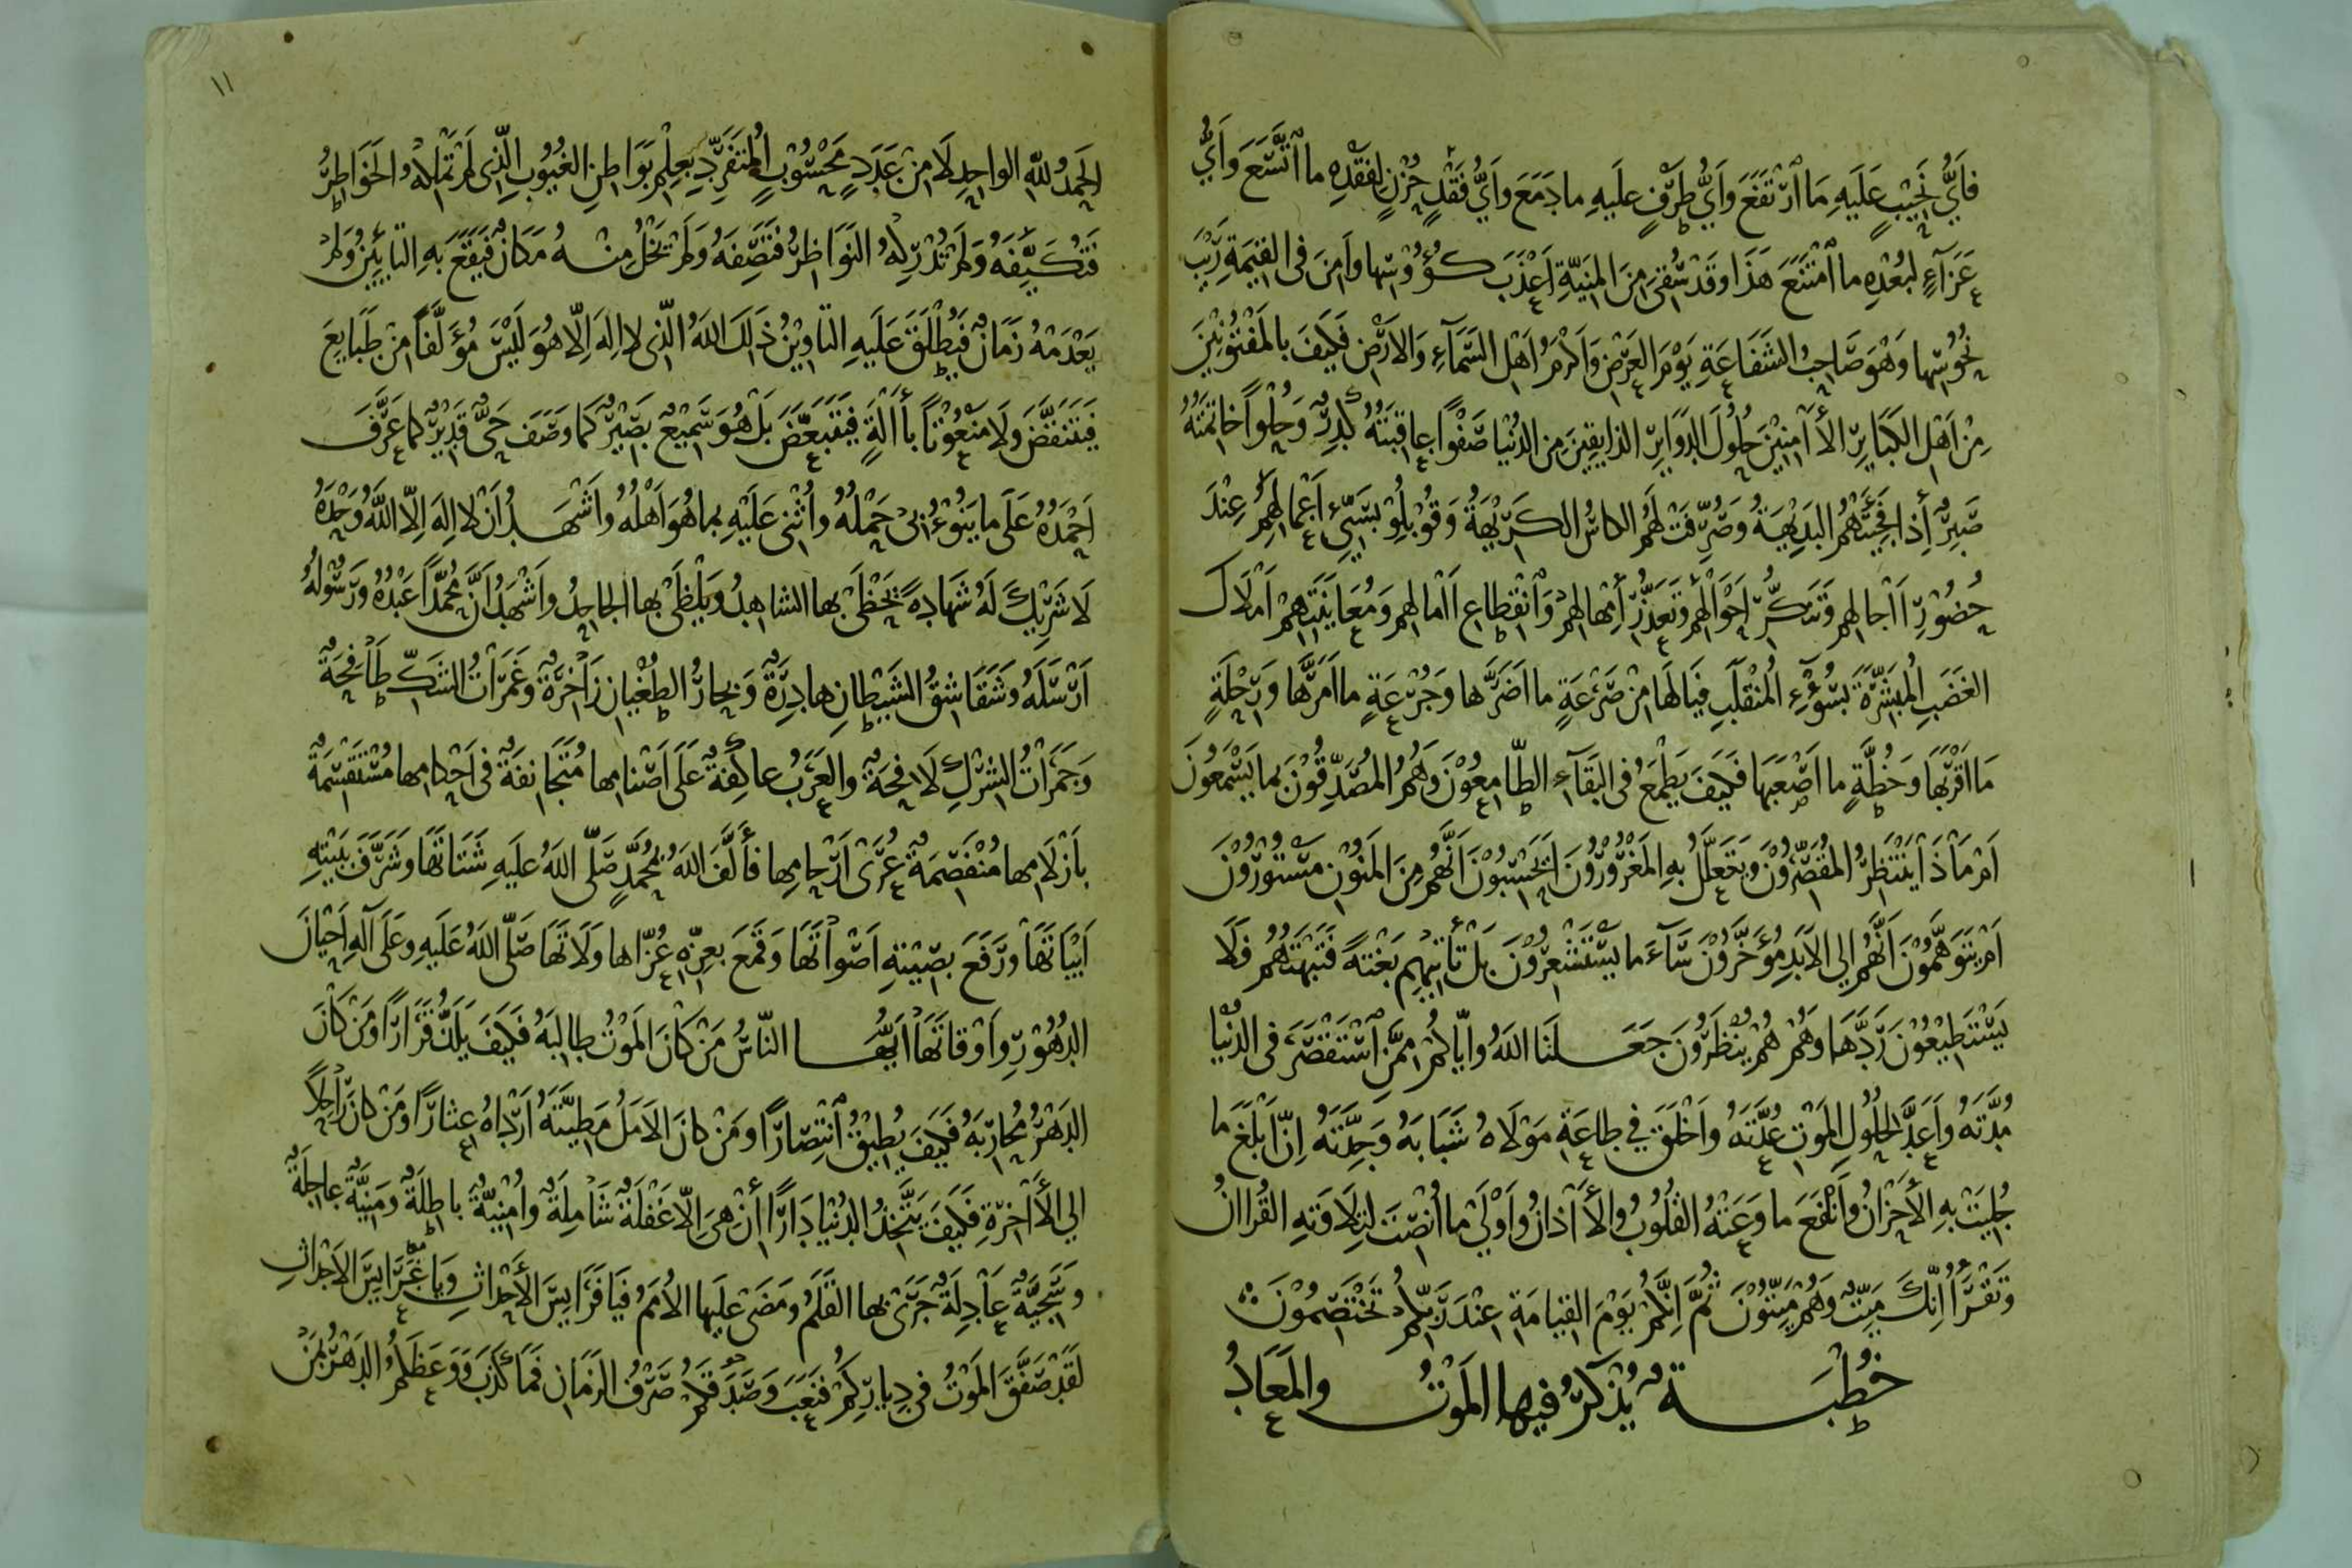 فَأَيُّ نَحِيْبٍ عَلَيْهِ مَا ارْتَفَعَ وَأَيُّ طَرْفٍ عَلَيْهِ مَا دَمَعَ وَأَيُّ فَقْدِ حُزْنٍ لِفَقْدِهِ مَا اتَّسَعَ وَأَيُّ
عَزَآءٍ لِبُعْدِهِ مَا امْتَنَعَ هَذَا وَقَدْ سُقِيَ مِنَ الْمَنِيَّةِ أَعْذَبَ كُؤُوْسِهَا وَأَمِنَ فِي الْقِيٰمَةِ رَيْبَ
نُحُوْسِهَا وَهُوَ صَاحِبُ الشَّفَاعَةِ يَوْمَ الْعَرْضِ وَأَكْرَمُ أَهْلِ السَّمَآءِ وَالْأَرْضِ فَكَيْفَ بِالْمَفْتُوْنِيْنَ
مِنْ أَهْلِ الْكَبَايِرِ الْأَآمِنِيْنَ حُلُوْلَ الدَّوَايِرِ الذَايِقِيْنَ مِنَ الدُّنْيَا صَفْوًا عَاقِبَتُهُ كَدِرٌ وَحُلْوًا خَاتِمَتُهُ
صَبِرٌ إِذَا فَجِئَتْهُمُ الْبَدِيْهَةُ وَصُرِّفَتْ لَهُمُ الْكَاسُ الْكَرِيْهَةُ وَقُوْبِلُوْا بِسَيِّءِ أَعْمَالِهِمْ عِنْدَ
حُضُوْرِ أَاجَالِهِمْ وَتَنَكُّرِ أَحْوَالِهِمْ وَتَعَذُّرِ إِمْهَالِهِمْ وَانْقِطَاعِ أَامَالِهِمْ وَمُعَايَنَتِهِمْ أَمْلَاكَ
الْغَضَبِ الْمُبَشِّرَةَ بِسُوْءِ الْمُنْقَلَبِ فَيَالَهَا مِنْ صَرْعَةٍ مَا أَضَرَّهَا وَجُرْعَةٍ مَا أَمَرَّهَا وَرِحْلَةٍ
مَا أَقْرَبَهَا وَخُطَّةٍ مَا أَصْعَبَهَا فَكَيْفَ يَطْمَعُ فِي الْبَقَآءِ الطَّامِعُوْنَ وَهُمُ الْمُصَدِّقُوْنَ بِمَا يَسْمَعُوْنَ
أَمْ مَاذَا يَنْتَظِرُ الْمُقَصِّرُوْنَ وَيَتَعَلَّلُ بِهِ الْمَغْرُوْرُوْنَ أَيَحْسَبُوْنَ أَنَّهُمْ مِنَ الْمَنُوْنِ مَسْتُوْرُوْنَ
أَمْ يَتَوَهَّمُوْنَ أَنَّهُمْ إِلَى الْأَبَدِ مُؤَخَّرُوْنَ سَآءَ مَا يَسْتَشْعِرُوْنَ بَلْ تَأْتِيْهِمْ بَغْتَةً فَتَبْهَتُهُمْ فَلَا
يَسْتَطِيْعُوْنَ رَدَّهَا وَهُمْ هُمْ يُنْظَرُوْنَ جَعَلَنَا اللّٰهُ وَإِيَّاكُمْ مِمَّنِ اسْتَقْصَرَ فِي الدُّنْيَا
مُدَّتَهُ وَأَعَدَّ لِحُلُوْلِ الْمَوْتِ عُدَّتَهُ وَأَخْلَقَ فِيْ طَاعَةِ مَوْلَاهُ شَبَابَهُ وَجِدَّتَهُ إِنَّ أَبْلَغَ مَا
جُلِيَتْ بِهِ الْأَحْزَانُ وَأَنْفَعَ مَا وَعَتْهُ الْقُلُوْبُ وَالْأَآذَانُ وَأَوْلٰى مَا أُنْصِتَ لِتِلَاوَتِهِ الْقُرْاٰنُ
وَتَقْرَأُ إِنَّكَ مَيِّتٌ وَهُمْ مَيِّتُوْنَ ثُمَّ إِنَّكُمْ يَوْمَ الْقِيَامَةِ عِنْدَ رَبِّكُمْ تَخْتَصِمُوْنَ
خُطْبَةٌ يُذْكَرُ فِيْهَا الْمَوْتُ وَالْمَعَادُ
١١
الْحَمْدُ لِلّٰهِ الْوَاحِدِ لَا مِنْ عَدَدٍ مَحْسُوْبٍ الْمُتَفَرِّدِ بِعِلْمِ بَوَاطِنِ الْغُيُوْبِ الَّذِيْ لَمْ تَمْلِكْهُ الْخَوَاطِرُ
فَتُكَيِّفَهُ وَلَمْ تُدْرِكْهُ النَّوَاظِرُ فَتَصِفَهُ وَلَمْ يَخْلُ مِنْهُ مَكَانٌ فَيَقَعَ بِهِ التَّأْيِيْنُ وَلَمْ
يَعْدَمْهُ زَمَانٌ فَيُطْلَقَ عَلَيْهِ التَّاوِيْنُ ذٰلِكَ اللّٰهُ الَّذِيْ لَا إِلَهَ إِلَّا هُوَ لَيْسَ مُؤَلَّفًا مِنْ طَبَايِعَ
فَيَتَنَقَّضَ وَلَا مَنْعُوْتًا بِأَالَةٍ فَيَتَبَعَّضَ بَلْ هُوَ سَمِيْعٌ بَصِيْرٌ كَمَا وَصَفَ حَيٌّ قَدِيْرٌ كَمَا عَرَّفَ
أَحْمَدُهُ عَلَى مَا يَنُوْءُ بِيْ حَمْلُهُ وَأُثْنِيْ عَلَيْهِ بِمَا هُوَ أَهْلُهُ وَأَشْهَدُ أَنْ لَا إِلَهَ إِلَّا اللّٰهُ وَحْدَهُ
لَا شَرِيْكَ لَهُ شَهَادَةً يَحْظَى بِهَا الشَاهِدُ وَيَلْظَى بِهَا الْجَاحِدُ وَأَشْهَدُ أَنَّ مُحَمَّدًا عَبْدُهُ وَرَسُوْلُهُ
أَرْسَلَهُ وَشَقَاشِقُ الشَّيْطَانِ هَادِرَةٌ وَبِحَارُ الطُّغْيَانِ زَاخِرَةٌ وَغَمَرَاتُ الشَّكِّ طَافِحَةٌ
وَجَمَرَاتُ الشِّرْكِ لَافِحَةٌ وَالْعَرَبُ عَاكِفَةٌ عَلَى أَصْنَامِهَا مُتَجَانِفَةٌ فِي أَحْكَامِهَا مُسْتَقْسِمَةٌ
بِأَزْلَامِهَا مُنْفَصِمَةٌ عُرٰى أَرْحَامِهَا فَأَلَّفَ اللّٰهُ بِمُحَمَّدٍ صَلَّى اللّٰهُ عَلَيْهِ شَتَاتَهَا وَشَرَّفَ بِبَيْتِهِ
أَبْيَاتَهَا وَرَفَعَ بِصِيْتِهِ أَصْوَاتَهَا وَقَمَعَ بِعِزِّهِ عُزَّاهَا وَلَاتَهَا صَلَّى اللّٰهُ عَلَيْهِ وَعَلَى آلِهِ أَحْيَانَ
الدُّهُوْرِ وَأَوْقَاتَهَا أَيُّهَا النَّاسُ مَنْ كَانَ الْمَوْتُ طَالِبَهُ فَكَيْفَ يَلَذُّ قَرَارًا وَمَنْ كَانَ
الدَّهْرُ مُحَارِبَهُ فَكَيْفَ يُطِيْقُ انْتِصَارًا وَمَنْ كَانَ الْأَمَلُ مَطِيَّتَهُ أَرْدَاهُ عِثَارًا وَمَنْ كَانَ رَاحِلًا
إِلَى الْأَآخِرَةِ فَكَيْفَ يَتَّخِذُ الدُّنْيَا دَارًا إِنْ هِيَ إِلَّا غَفْلَةٌ شَامِلَةٌ وَأُمْنِيَّةٌ بَاطِلَةٌ وَمَنِيَّةٌ عَاجِلَةٌ
وَسَجِيَّةٌ عَادِلَةٌ جَرَى بِهَا الْقَلَمُ وَمَضَى عَلَيْهَا الْأُمَمُ فَيَا فَرَايِسَ الْأَحْدَاثِ وَيَا عَرَايِسَ الْأَجْدَاثِ
لَقَدْ صَفَّقَ الْمَوْتُ فِي دِيَارِكُمْ فَنَعَبَ وَصَدَقَكُمْ صَرْفُ الزَّمَانِ فَمَا كَذَبَ وَوَعَظَكُمُ الدَّهْرُ بِمَنْ